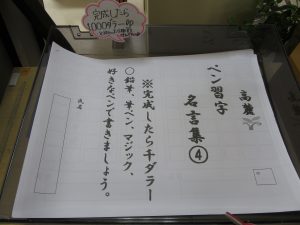 完成したら
1000ダラー
高麓
ペン習字
名言集④
※完成したら千ダラー
○鉛筆、筆ペン、マジック、
好きなペンで書きましょう。
氏名